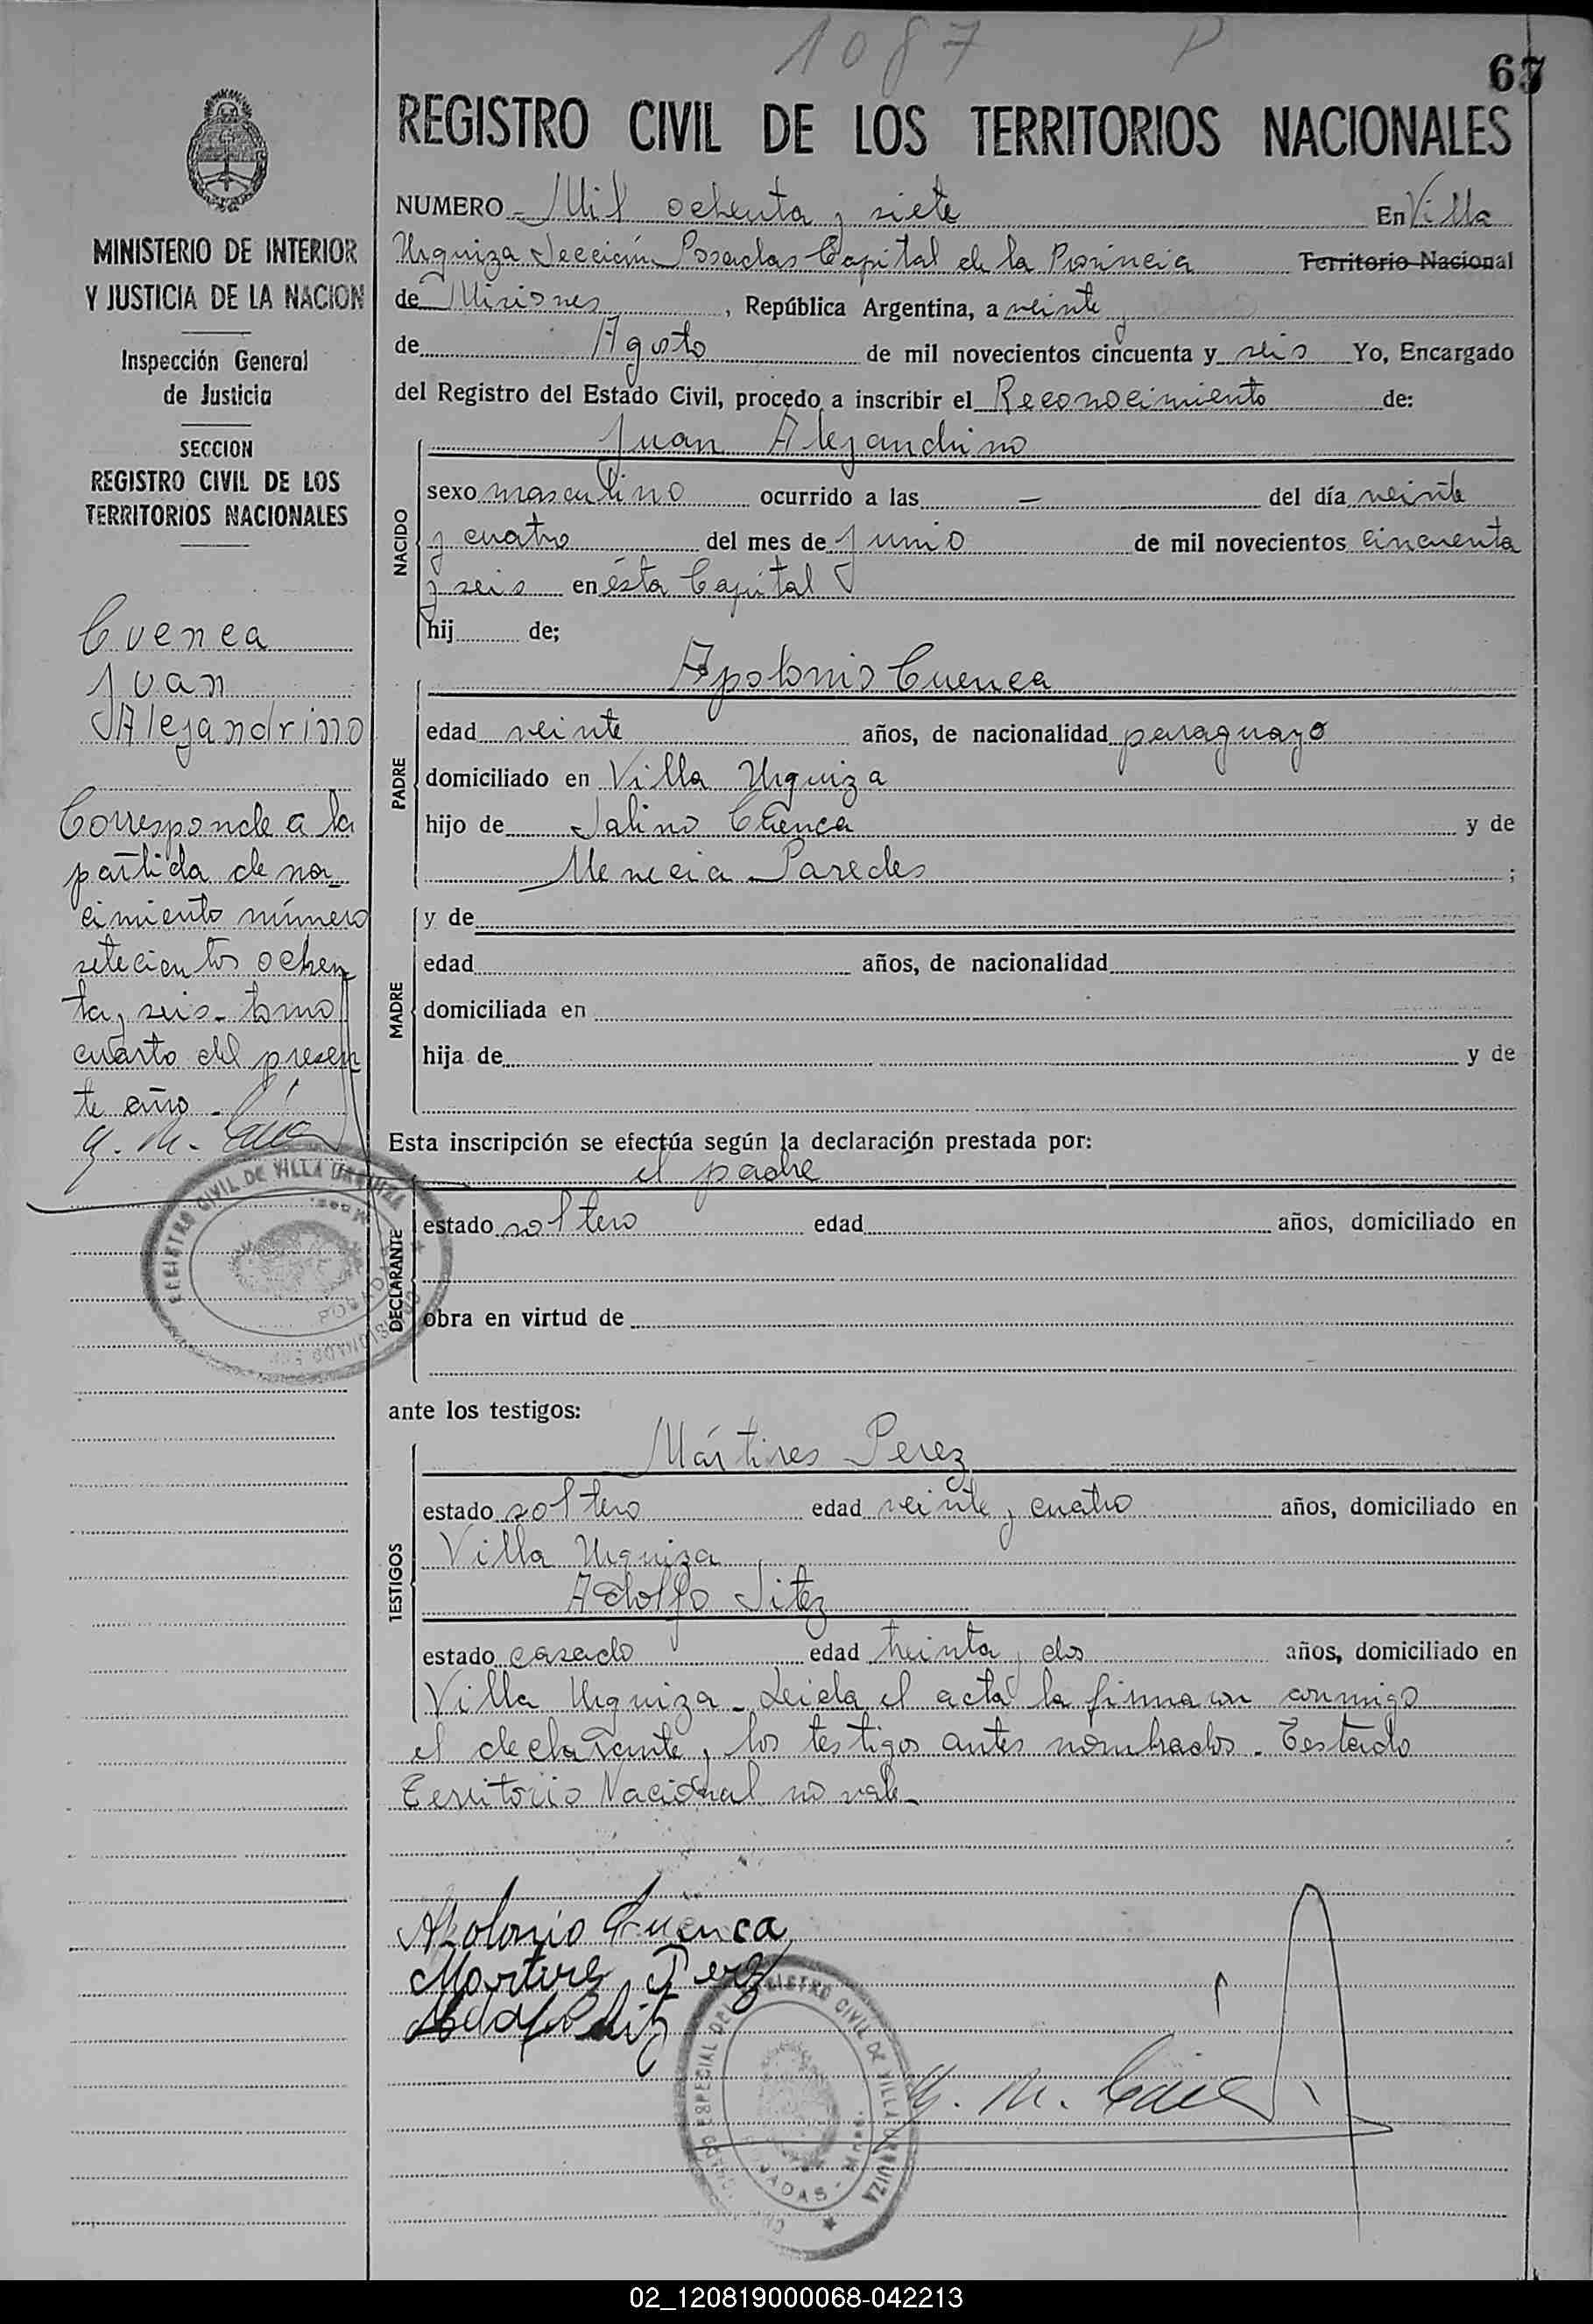 1087 P
67
REGISTRO CIVIL DE LOS TERRITORIOS NACIONALES
MINISTERIO DE INTERIOR
Y JUSTICIA DE LA NACION
Inspección General
de Justicia
SECCION
REGISTRO CIVIL DE LOS
TERRITORIOS NACIONALES
Cuenca
Juan
Alejandrino
Corresponde a la
partida de na-
cimiento número
setecientos ochen
ta y seis - tomo
cuarto del presen
te año -
NUMERO - Mil ochenta y siete En Villa
Urquiza Sección Posadas Capital de la Provincia Territorio Nacional
de Misiones, República Argentina, a veinte
de Agosto de mil novecientos cincuenta y seis Yo, Encargado
del Registro del Estado Civil, procedo a inscribir el Reconocimiento de:
Juan Alejandrino
NACIDO
sexo masculino ocurrido a las - del día veinte
y cuatro del mes de Junio de mil novecientos cincuenta
y seis en ésta Capital
hij de;
Apolonio Cuenca
PADRE
edad veinte años, de nacionalidad paraguayo
domiciliado en Villa Urquiza
hijo de Salino Cuenca y de
Mencia Paredes ;
MADRE
y de
edad años, de nacionalidad
domiciliada en
hija de y de
Esta inscripción se efectúa según la declaración prestada por:
el padre
DECLARANTE
estado soltero edad años, domiciliado en
obra en virtud de
ante los testigos:
Mártires Perez
TESTIGOS
estado soltero edad veinte y cuatro años, domiciliado en
Villa Urquiza
Adolfo Sitez
estado casado edad treinta y dos años, domiciliado en
Villa Urquiza - Leida el acta la firman conmigo
el declarante y los testigos antes nombrados - Testado
Territorio Nacional no vale -
Apolonio Cuenca
Martires Perez
REGISTRO CIVIL DE VILLA URQUIZA
REGISTRO CIVIL DE VILLA URQUIZA
02_120819000068-042213